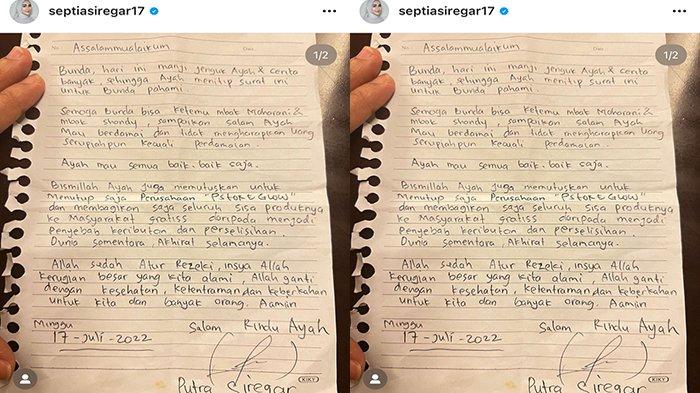 septiasiregar17
1/2
No. Assalammualaikum Date
Bunda, hari ini manji jenguk Ayah & cerita
banyak, sehingga Ayah menitip surat ini
untuk Bunda pahami
Semoga Bunda bisa ketemu mbak Maharani &
mbak shandy, sampaikan salam Ayah
Mau berdamai dan tidak mengharapkan Uang
serupiahpun kecuali perdamaian.
Ayah mau semua baik-baik saja.
Bismillah Ayah juga memutuskan untuk
Menutup saja Perusahaan "PStore GLOW"
dan membagikan saja seluruh sisa produknya
ke Masyarakat gratiss daripada menjadi
Penyebab keributan dan perselisihan.
Dunia sementara, Akhirat selamanya.
Allah sudah Atur Rezeki, insya Allah
Kerugian besar yang kita alami, Allah ganti
dengan kesehatan, ketentraman dan keberkahan
untuk kita dan banyak orang. Aamiin
Minggu
17-Juli-2022
Salam Rindu Ayah
Putra Siregar
KIKY
septiasiregar17
1/2
No. Assalammualaikum Date
Bunda, hari ini manji jenguk Ayah & cerita
banyak, sehingga Ayah menitip surat ini
untuk Bunda pahami
Semoga Bunda bisa ketemu mbak Maharani &
mbak shandy, sampaikan salam Ayah
Mau berdamai dan tidak mengharapkan Uang
serupiahpun kecuali perdamaian.
Ayah mau semua baik-baik saja.
Bismillah Ayah juga memutuskan untuk
Menutup saja Perusahaan "PStore GLOW"
dan membagikan saja seluruh sisa produknya
ke Masyarakat gratiss daripada menjadi
Penyebab keributan dan perselisihan.
Dunia sementara, Akhirat selamanya.
Allah sudah Atur Rezeki, insya Allah
Kerugian besar yang kita alami, Allah ganti
dengan kesehatan, ketentraman dan keberkahan
untuk kita dan banyak orang. Aamiin
Minggu
17-Juli-2022
Salam Rindu Ayah
Putra Siregar
KIKY